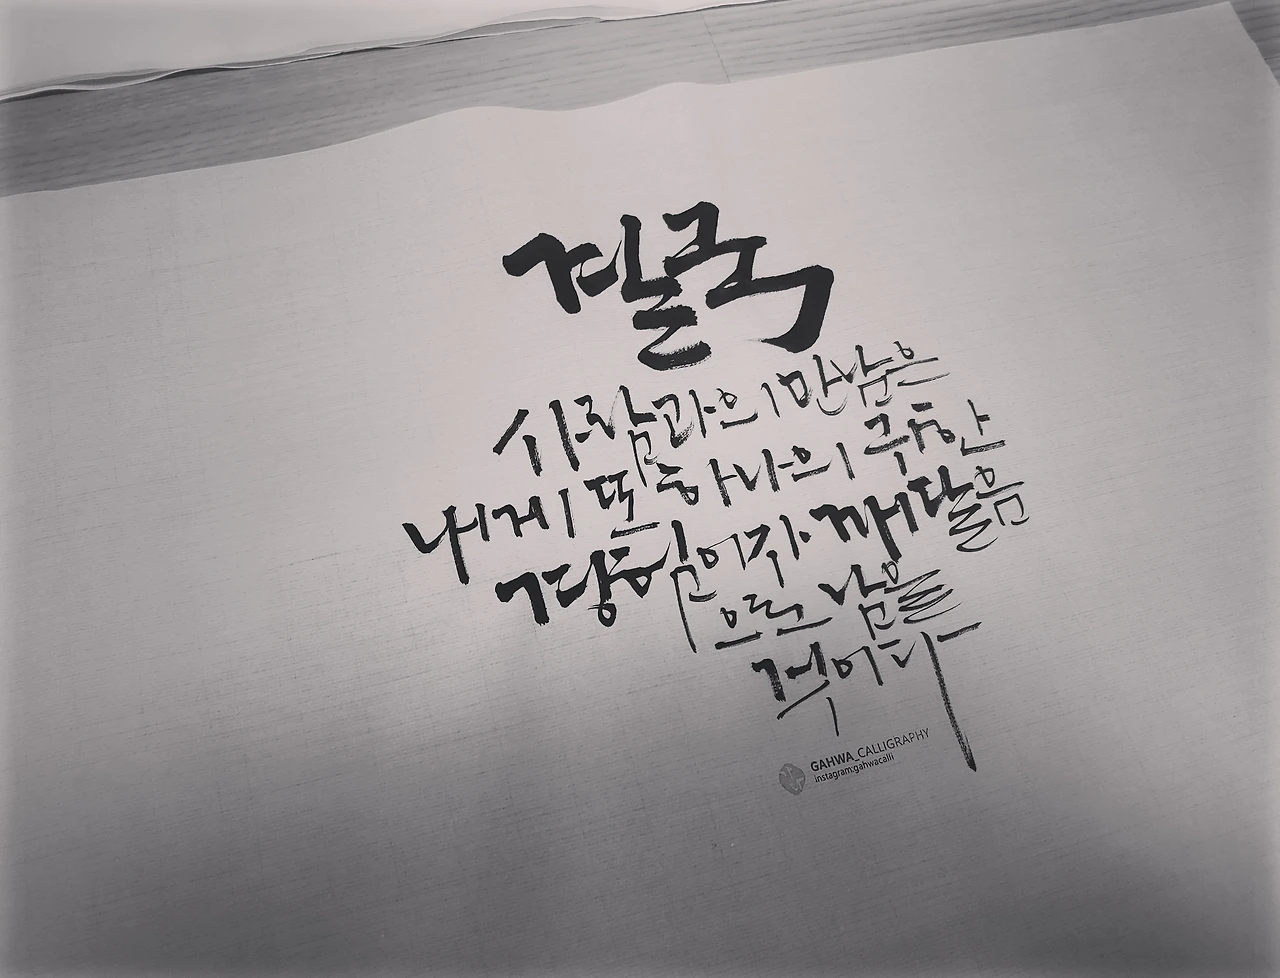 결국
사람과의 만남은
내게 또 하나의 귀한
경험이자 깨달음
으로 남을
것이다
GAHWA_CALLIGRAPHY
instagram:gahwacalli